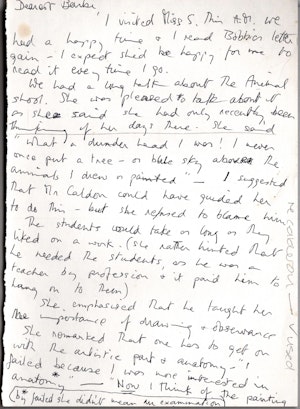 Dearest Barbie,
I visited Miss S. this A.M. We
had a happy time & I read Bobbie's letter
again – I expect she'd be happy for me to
read it every time I go.
We had a long talk about the Animal
school. She was pleased to talk about it
as she said she had only recently been
thinking of her days there. She said
"What a dunder head I was! I never
once put a tree – or blue sky above the
animals I drew or painted" – I suggested
that Mr Calderon could have guided her
to do this – but she refused to blame him.
The students could take as long as they
liked on a work. (She rather hinted that
he needed the students, as he was a
teacher by profession & it paid him to
hang on to them)
She emphasised that he taught her
the importance of drawing & observance
She remarked that one has to get on
with the artistic part & anatomy – "I
failed* because I was more interested in
anatomy" – "Now I think of the painting
(by* failed she didn't mean an examination